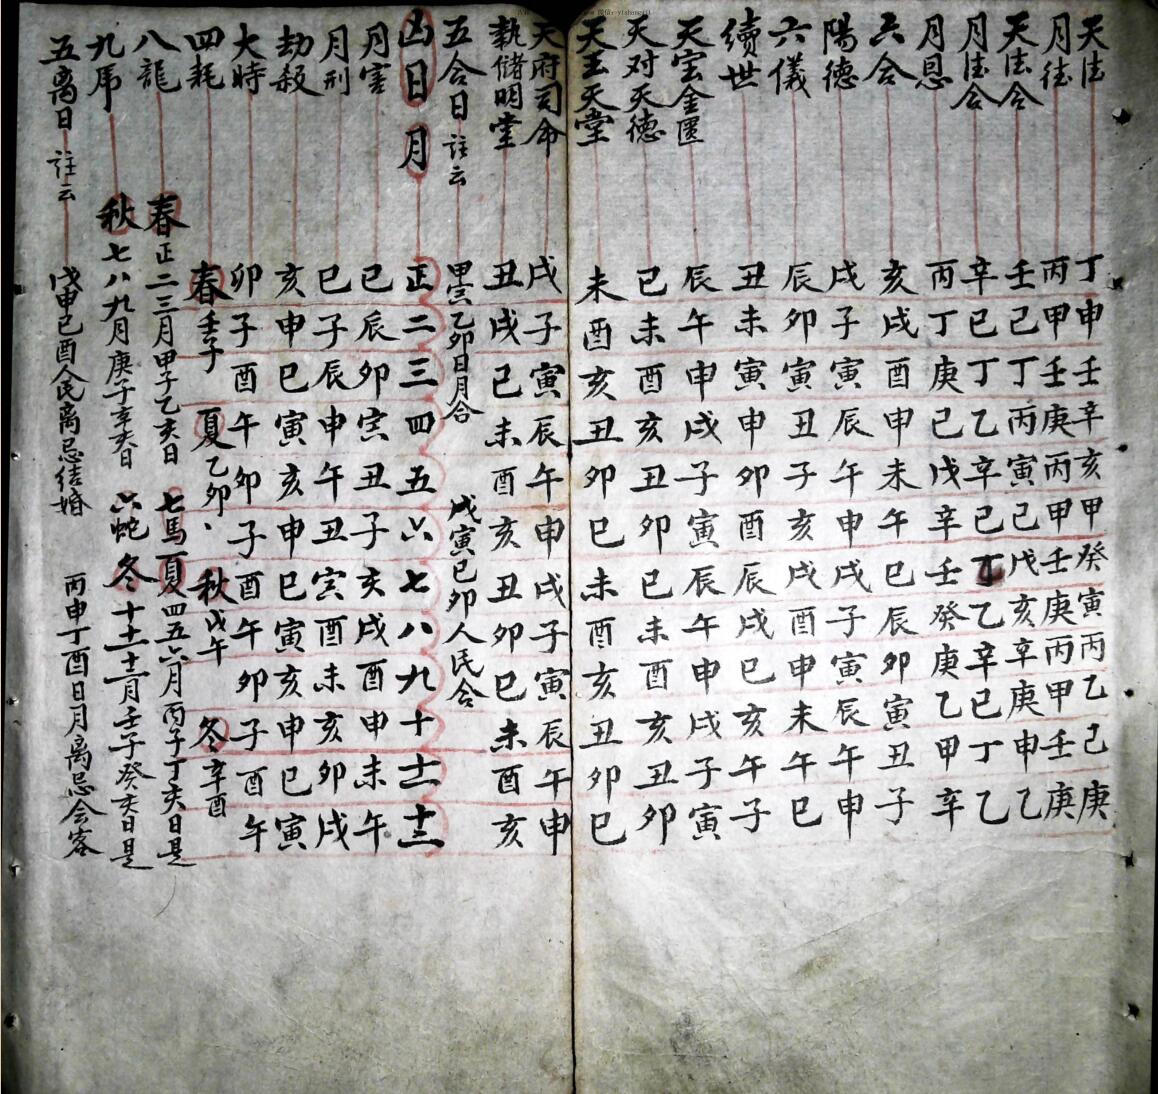 天德 丁申壬辛亥甲癸寅丙乙己庚
月德 丙甲壬庚丙甲壬庚丙甲壬庚
天德合 壬己丁丙寅己戊亥辛庚申乙
月德合 辛己丁乙辛己丁乙辛己丁乙
月恩 丙丁庚己戊辛壬癸庚乙甲辛
六合 亥戌酉申未午巳辰卯寅丑子
陽德 戌子寅辰午申戌子寅辰午申
六儀 辰卯寅丑子亥戌酉申未午巳
續世 丑未寅申卯酉辰戌巳亥午子
天宝金匱 辰午申戌子寅辰午申戌子寅
天对天德 巳未酉亥丑卯巳未酉亥丑卯
天玉天堂 未酉亥丑卯巳未酉亥丑卯巳
天府司命 戌子寅辰午申戌子寅辰午申
執储明堂 丑戌己未酉亥丑卯巳未酉亥
五合日 註云 甲寅乙卯日月合 戊寅己卯人民合
凶日月 正二三四五六七八九十十一十二
月害 巳辰卯寅丑子亥戌酉申未午
月刑 巳子辰申午丑寅酉未亥卯戌
劫殺 亥申巳寅亥申巳寅亥申巳寅
大時 卯子酉午卯子酉午卯子酉午
四耗 春壬子 夏乙卯 秋戊午 冬辛酉
八龍 春正二三月甲子乙亥日 七馬夏四五六月丙子丁亥日是
九虎 秋七八九月庚子辛亥日 六蛇冬十十一十二月壬子癸亥日是
五离日 註云 戊申己酉人民离忌结婚 丙申丁酉日月离忌会客